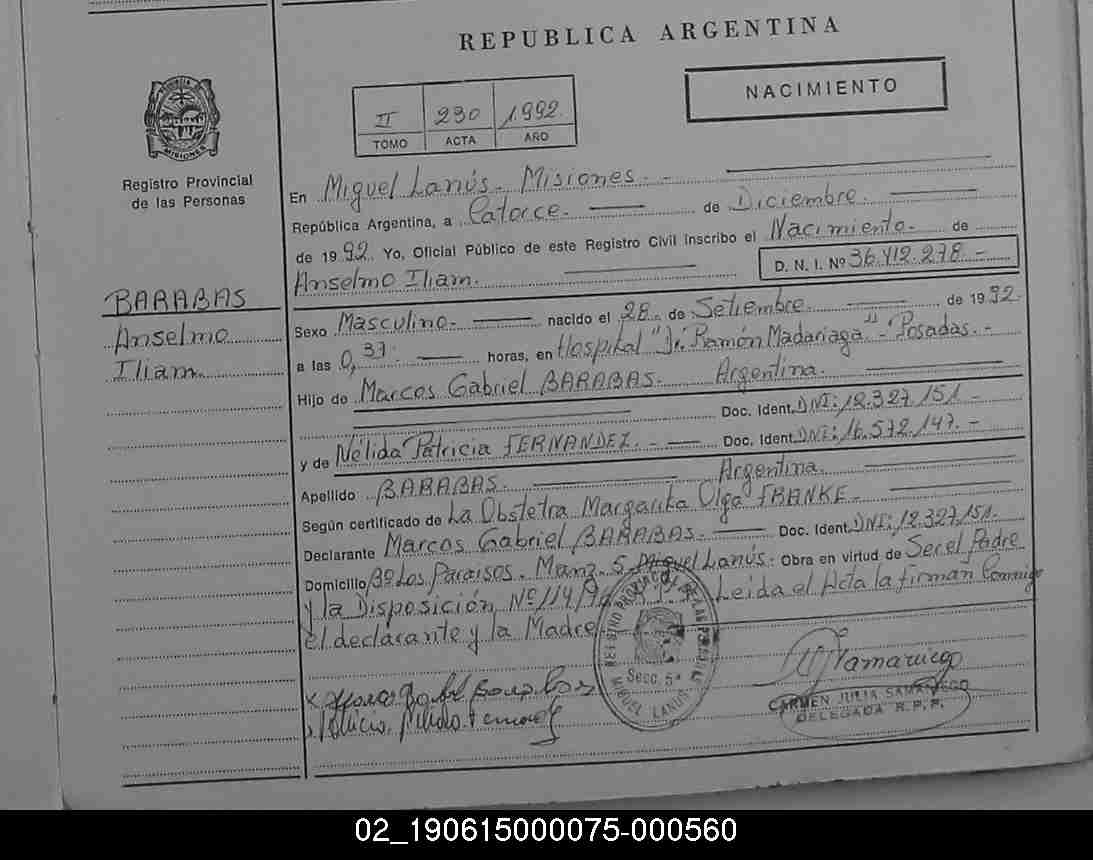 REPUBLICA ARGENTINA
PROVINCIA DE MISIONES
Registro Provincial
de las Personas
II 230 1.992.
TOMO ACTA AÑO
NACIMIENTO
BARABAS
Anselmo
Iliam.
En Miguel Lanús - Misiones. -
República Argentina, a Catorce. de Diciembre.
de 1992. Yo, Oficial Público de este Registro Civil inscribo el Nacimiento. de
Anselmo Iliam. D. N. I. Nº 36.412.278. -
Sexo Masculino. nacido el 28. de Setiembre. de 1992.
a las 0,37. horas, en Hospital "Dr. Ramón Madariaga" - Posadas. -
Hijo de Marcos Gabriel BARABAS. Argentina.
Doc. Ident. DNI: 12.327.151. -
y de Nélida Patricia FERNANDEZ. - Doc. Ident. DNI: 16.572.147. -
Argentina.
Apellido BARABAS.
Según certificado de La Obstetra Margarita Olga FRANKE. -
Declarante Marcos Gabriel BARABAS. - Doc. Ident. DNI: 12.327.151.
Domicilio Bº Los Paraisos. Manz. 5. Miguel Lanús. Obra en virtud de Ser el Padre
y la Disposición Nº 114/ Leida el Acta la firman Conmigo
el declarante y la Madre
REGISTRO PROVINCIAL DE LAS PERSONAS
Secc. 5ª
MIGUEL LANUS
CARMEN JULIA SAMANIEGO
DELEGADA R.P.P.
02_190615000075-000560